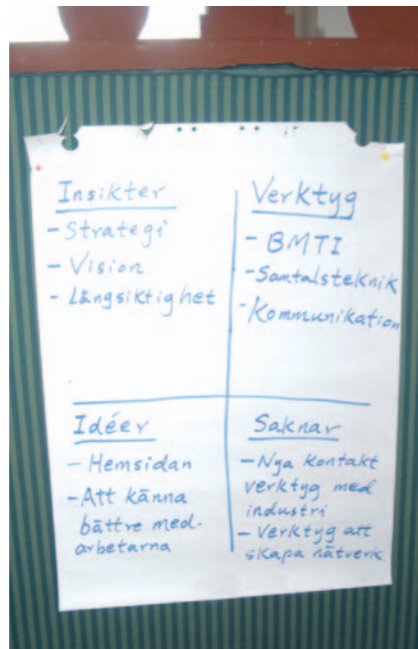 Insikter
- Strategi
- Vision
- Långsiktighet
Verktyg
- BMTI
- Samtalsteknik
- Kommunikation
Idéer
- Hemsidan
- Att känna
bättre med-
arbetarna
Saknar
- Nya kontakt
verktyg med
industri
- Verktyg att
skapa nätverk